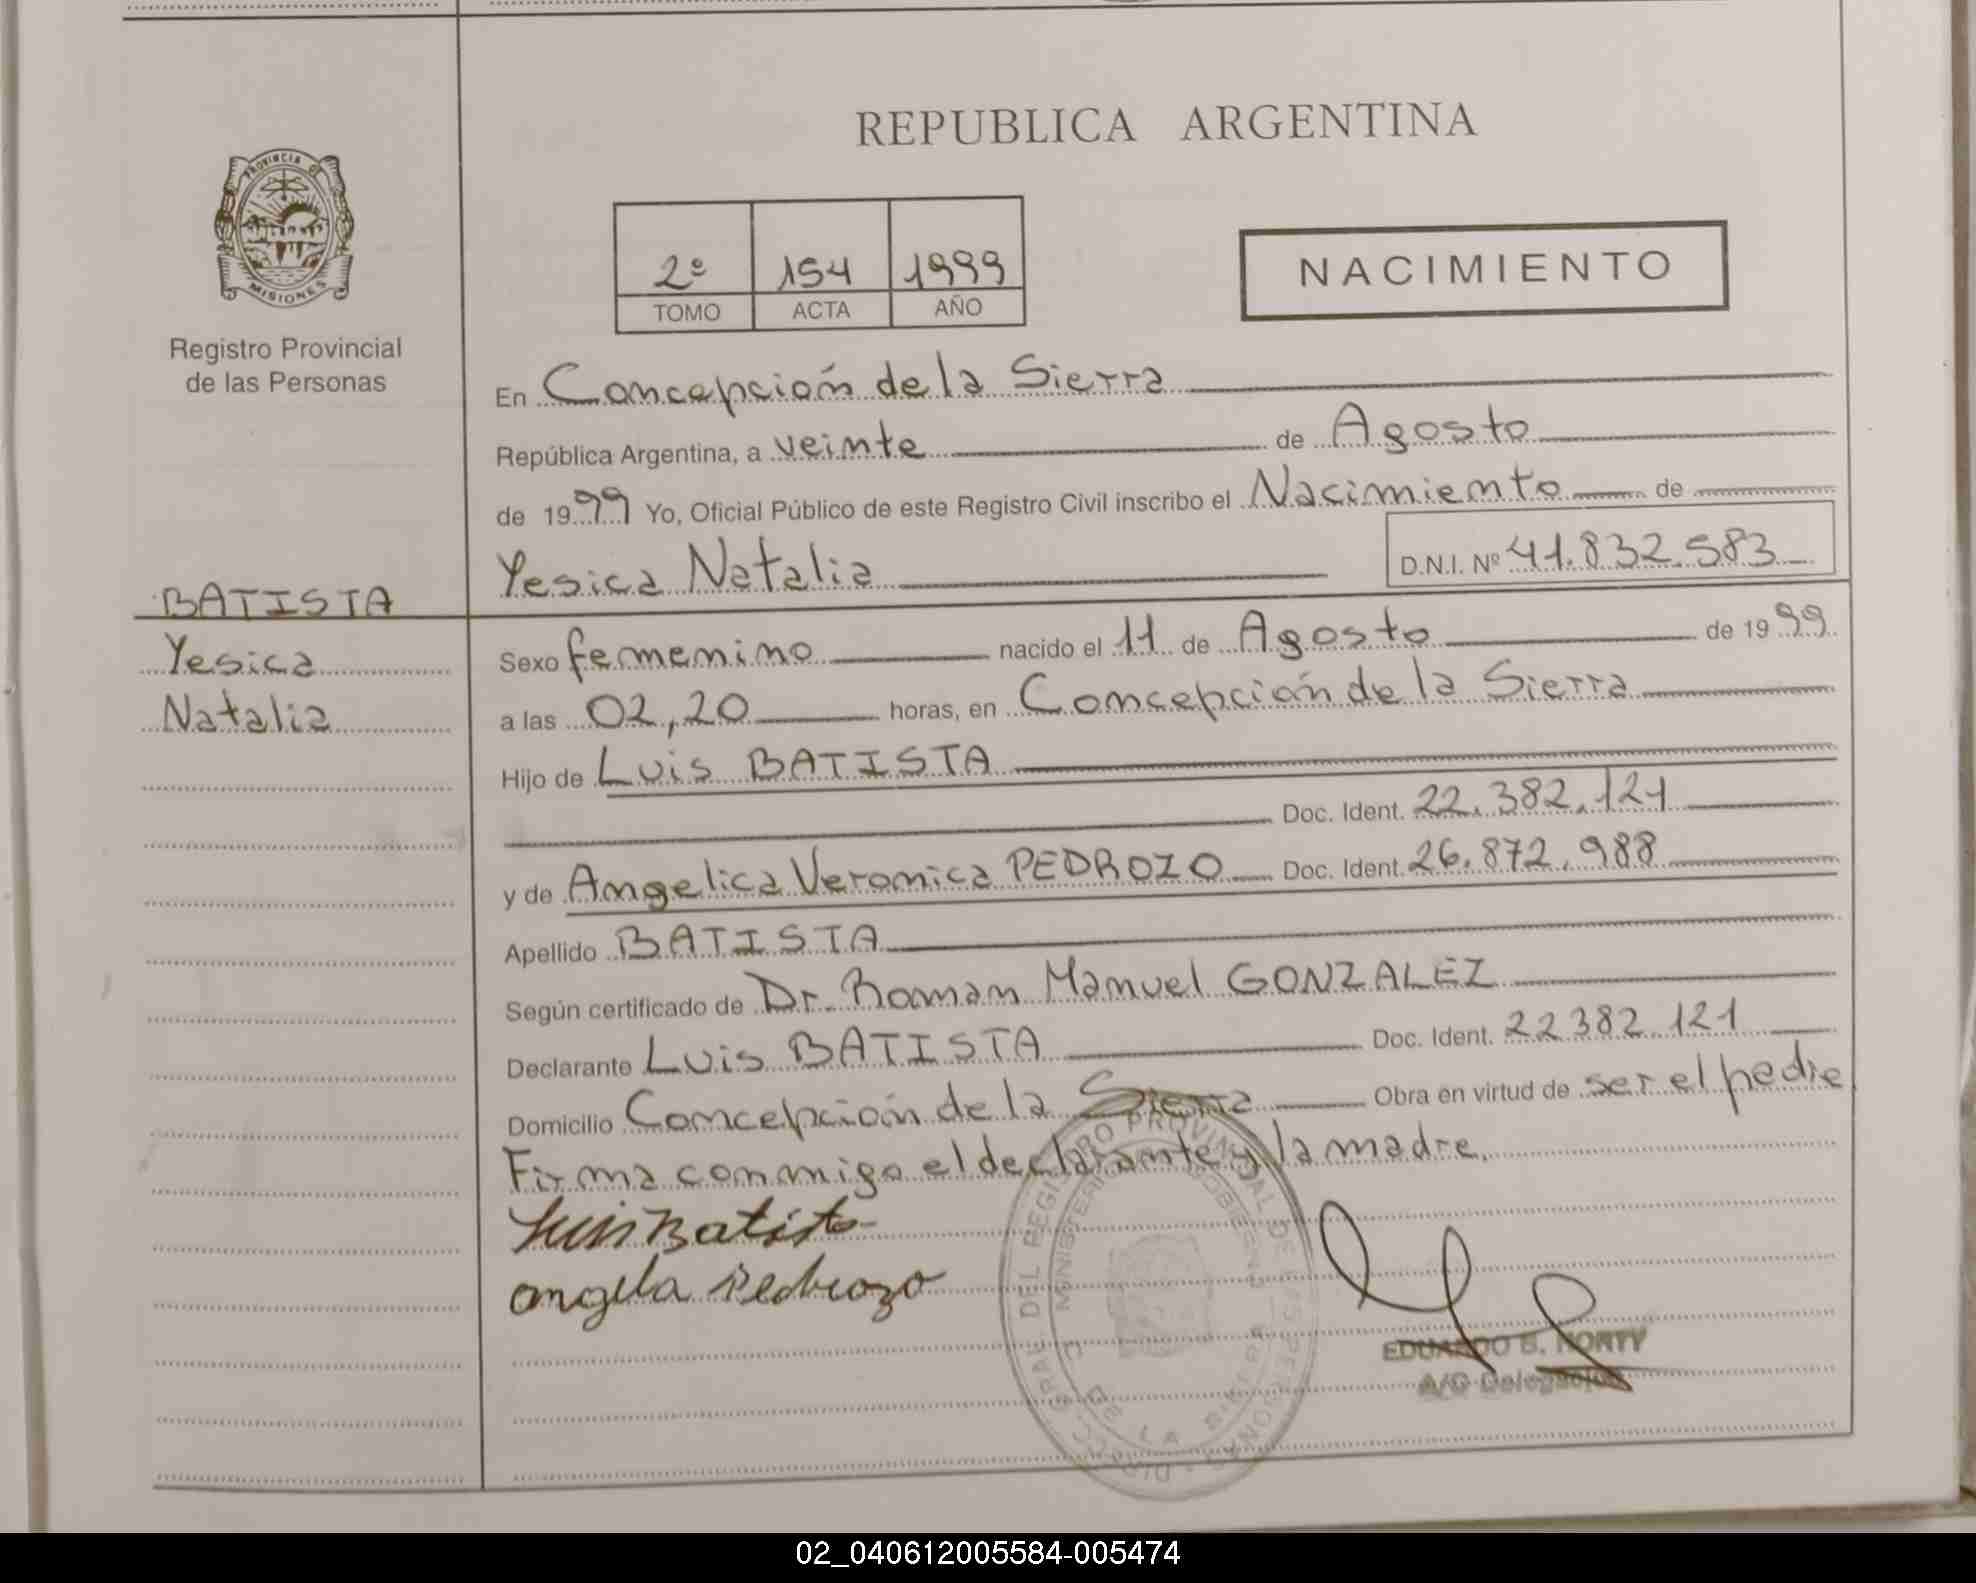 REPUBLICA ARGENTINA
PROVINCIA DE
MISIONES
Registro Provincial
de las Personas
2º 154 1999
TOMO ACTA AÑO
NACIMIENTO
En Concepción de la Sierra
República Argentina, a veinte de Agosto
de 1999 Yo, Oficial Público de este Registro Civil inscribo el Nacimiento de
Yesica Natalia D.N.I. Nº 41.832.583
BATISTA
Yesica
Natalia
Sexo femenino nacido el 11 de Agosto de 1999
a las 02,20 horas, en Concepción de la Sierra
Hijo de Luis BATISTA
Doc. Ident. 22.382.121
y de Angelica Veronica PEDROZO Doc. Ident. 26.872.988
Apellido BATISTA
Según certificado de Dr. Roman Manuel GONZALEZ
Declarante Luis BATISTA Doc. Ident. 22382121
Domicilio Concepción de la Sierra Obra en virtud de ser el padre
Firma conmigo el declarante y la madre.
Luis Batista
Angela Pedrozo
DEL REGISTRO PROVINCIAL DE LAS PERSONAS
MINISTERIO GOBIERNO
DE LA SIERRA
EDUARDO S.
A/C Delegación
02_040612005584-005474